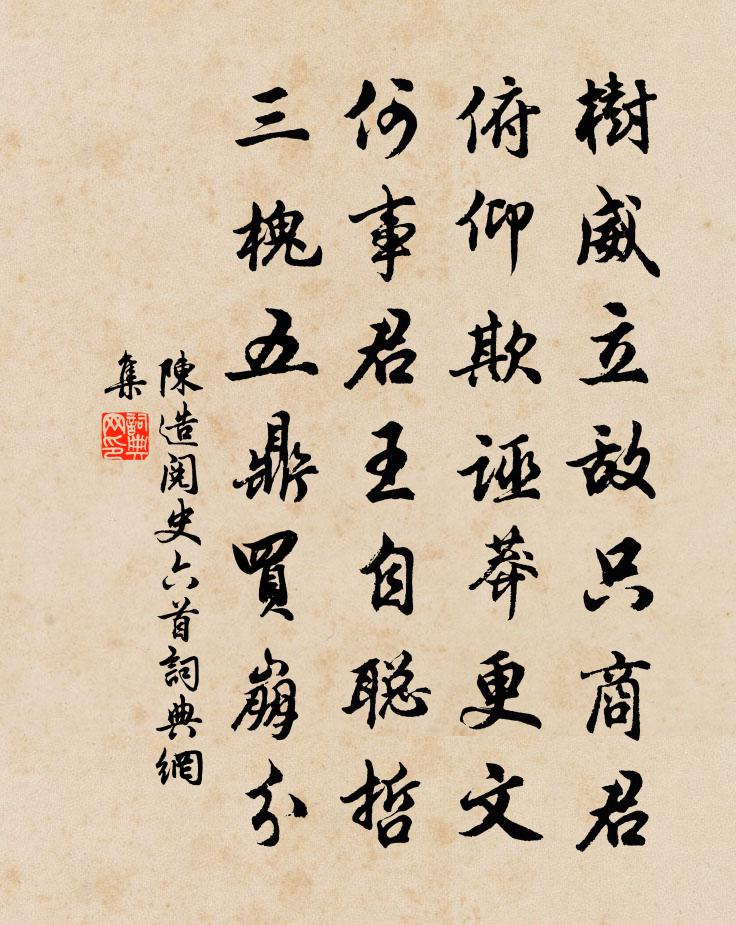 樹威立敵只商君
俯仰欺誣莽更文
何事君王自聰哲
三槐五鼎買崩分
陳造閱史六首詞典網
集
詞典
网印